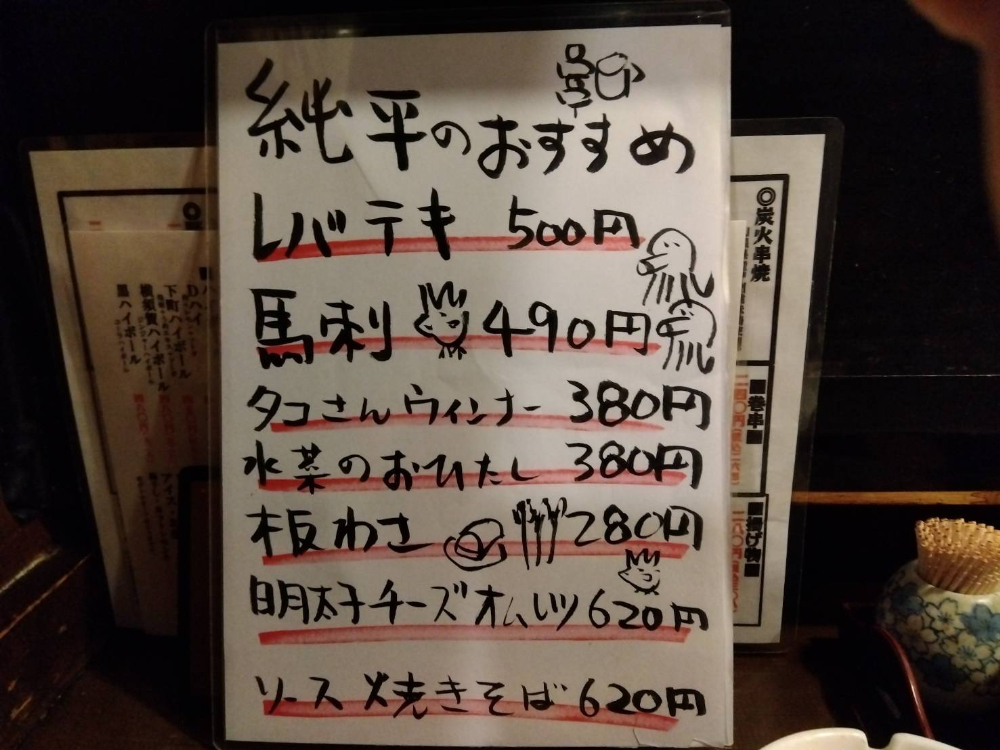 純平のおすすめ
レバテキ 500円
馬刺 490円
タコさんウィンナー 380円
水菜のおひたし 380円
板わさ 280円
明太子チーズオムレツ 620円
ソース焼きそば 620円
◎炭火串焼
■巻串■
■揚げ物■
Dハイ
下町ハイボール
横須賀ハイボール
黒ハイボール